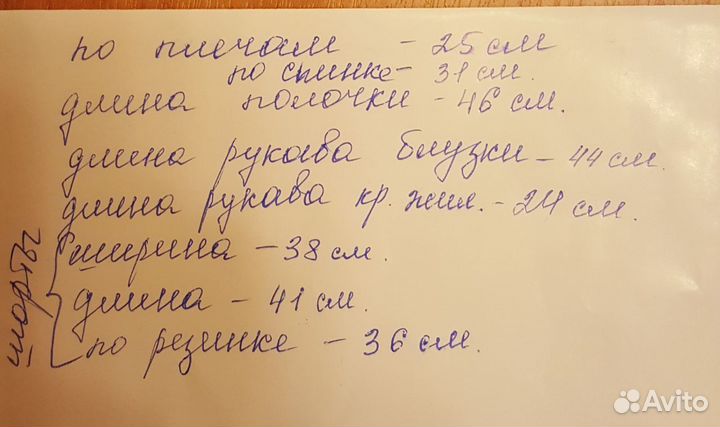 по плечам - 25 см
по спинке - 31 см.
длина полочки - 46 см.
длина рукава блузки - 44 см.
длина рукава кр. жил. - 24 см.
шорты
ширина - 38 см.
длина - 41 см.
по резинке - 36 см.
Avito